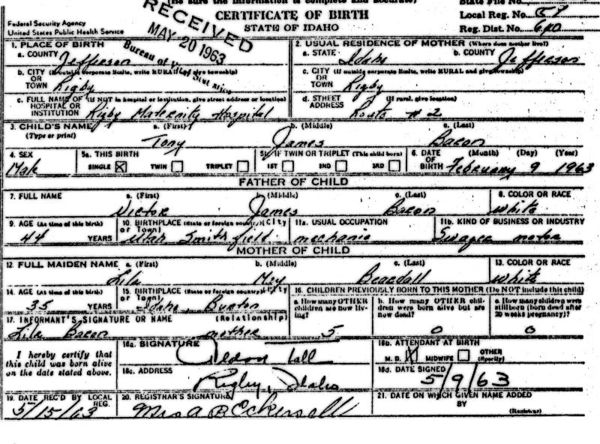 (Be sure the information is complete and accurate)
State File No.
CERTIFICATE OF BIRTH
STATE OF IDAHO
Federal Security Agency
United States Public Health Service
Local Reg. No. 57
Reg. Dist. No. 680
RECEIVED
MAY 20 1963
Bureau of Vital
1. PLACE OF BIRTH
a. COUNTY Jefferson
b. CITY (If outside corporate limits, write RURAL and give township)
OR
TOWN Rigby
c. FULL NAME OF (If NOT in hospital or institution, give street address or location)
HOSPITAL OR
INSTITUTION Rigby Maternity Hospital
2. USUAL RESIDENCE OF MOTHER (Where does mother live?)
a. STATE Idaho b. COUNTY Jefferson
c. CITY (If outside corporate limits, write RURAL and give township)
OR
TOWN Rigby
d. STREET (If rural, give location)
ADDRESS Route # 2
3. CHILD'S NAME a. (First) b. (Middle) c. (Last)
(Type or print) Tony James Bacon
4. SEX Male
5a. THIS BIRTH
SINGLE X TWIN TRIPLET
5b. IF TWIN OR TRIPLET (This child born)
1ST 2ND 3RD
6. DATE OF BIRTH (Month) (Day) (Year)
February 9 1963
FATHER OF CHILD
7. FULL NAME a. (First) b. (Middle) c. (Last) 8. COLOR OR RACE
Victor James Bacon White
9. AGE (At time of this birth)
44 YEARS
10. BIRTHPLACE (State or foreign country) (City or Town)
Utah Smithfield
11a. USUAL OCCUPATION
mechanic
11b. KIND OF BUSINESS OR INDUSTRY
motor
MOTHER OF CHILD
12. FULL MAIDEN NAME a. (First) b. (Middle) c. (Last) 13. COLOR OR RACE
Lila White
14. AGE (At time of this birth)
35 YEARS
15. BIRTHPLACE (State or foreign country) (City or Town)
Idaho Burton
16. CHILDREN PREVIOUSLY BORN TO THIS MOTHER (Do NOT include this child)
a. How many OTHER children are now living?
5
b. How many OTHER children were born alive but are now dead?
0
c. How many children were stillborn (born dead after 20 weeks pregnancy)?
0
17. INFORMANT'S SIGNATURE OR NAME (Relationship)
Lila Bacon mother
I hereby certify that
this child was born alive
on the date stated above.
18a. SIGNATURE
18b. ATTENDANT AT BIRTH
M. D. X MIDWIFE OTHER (Specify)
18c. ADDRESS
Rigby, Idaho
18d. DATE SIGNED
5/9/63
19. DATE REC'D BY LOCAL REG.
5/15/63
20. REGISTRAR'S SIGNATURE
Mrs A B Eckersell
21. DATE ON WHICH GIVEN NAME ADDED
BY (Registrar)